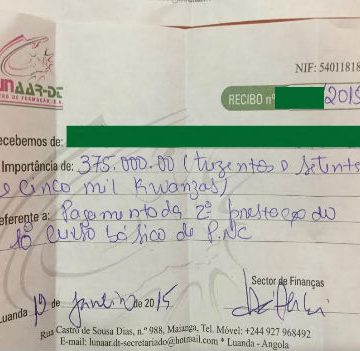 LUNAAR-DT
NIF: 54011818
RECIBO nº 2015
ecebemos de:
Importância de: 375.000.00 (trezentos e setenta
e cinco mil Kwanzas)
eferente a: Pagamento da 2ª prestação do
1º curso básico de P.NC
Sector de Finanças
Luanda 19 de Janeiro de 2015
Rua Castro de Sousa Dias, n.º 988, Maianga, Tel. Móvel: +244 927 968492
E-mail: lunaar.dt-secretariado@hotmail.com * Luanda - Angola